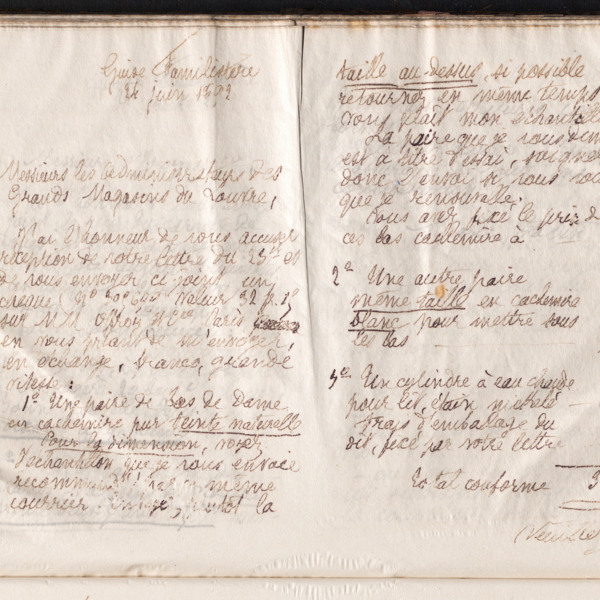 Guise Familistère
24 juin 1892
Messieurs les administrateurs des
Grands Magasins du Louvre,
J'ai l'honneur de vous accuser
réception de votre lettre du 23 et
de vous envoyer ci joint un
chèque valeur
sur MM Paris
en vous priant de m'envoyer,
en échange, franco, grande
vitesse:
1º Une paire de Bas de Dame
en cachemire pur teinte naturelle
Pour la dimension, voyez
l'échantillon que je vous envoie
recommandé par ce même
courrier plutôt la
taille au-dessus, si possible
retourner en même temps
vous plaît mon échantillon
La paire que je vous
est à titre d'essai, soignez
donc l'envoi si vous
que je renouvelle.
Vous avez fixé le prix de
ces bas cachemire à
2º Une autre paire
même taille en cachemire
blanc pour mettre sous
les bas
3º Un cylindre à eau chaude
pour lit, étain
frais d'emballage du
dit, fixé par votre lettre
Total conforme 3